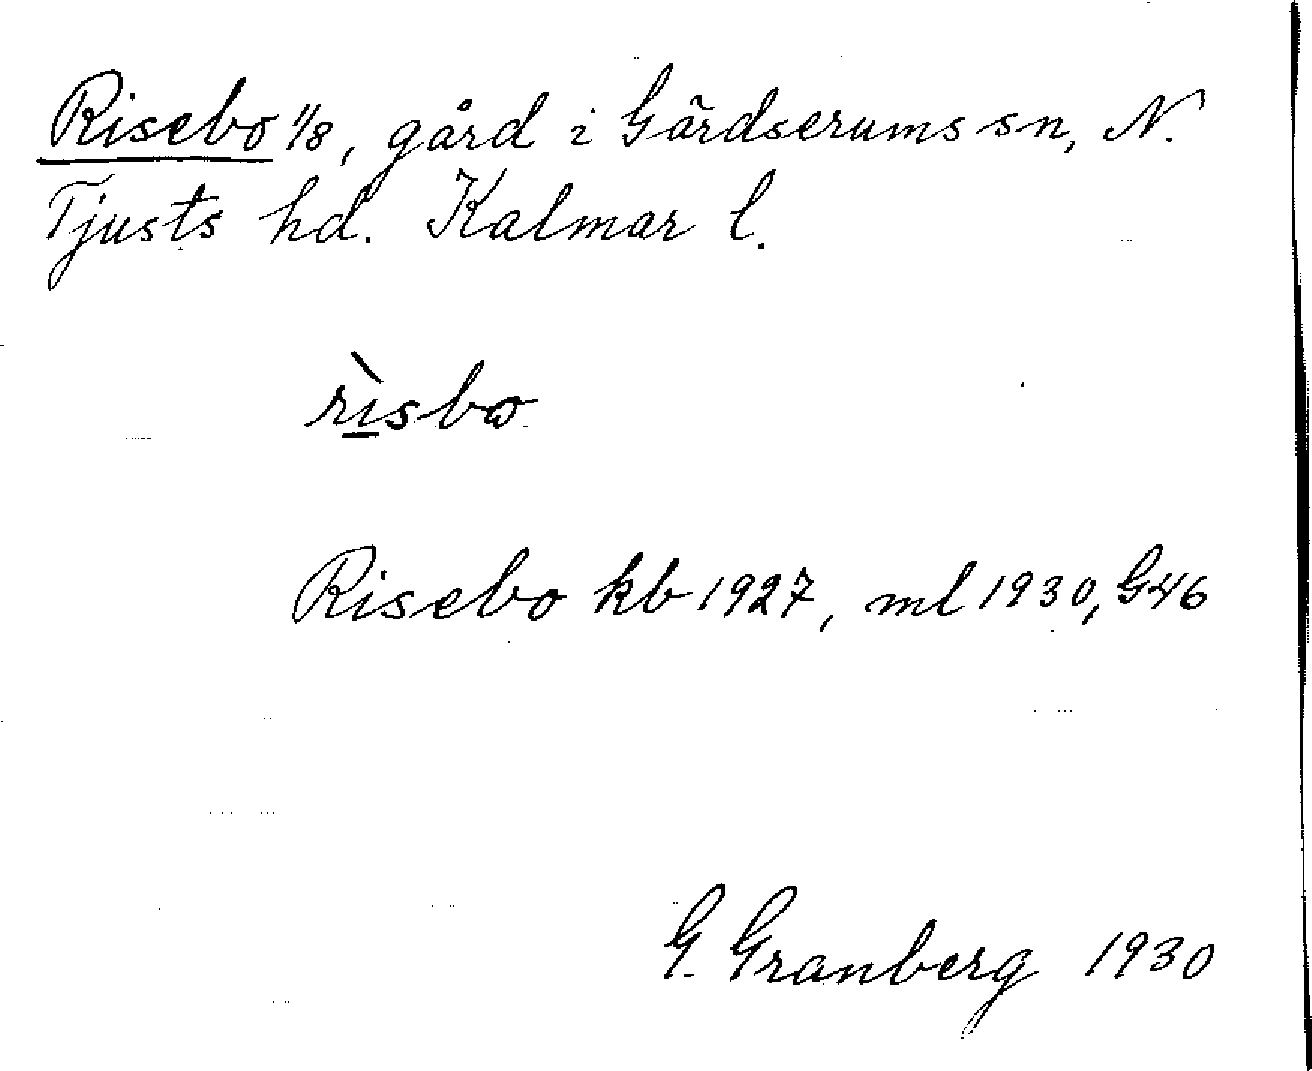 Risebo 1/8, gård i Gärdserums sn, N.
Tjusts hd. Kalmar l.
rìsbo
Risebo kb 1927, ml 1930, G46
G. Granberg 1930